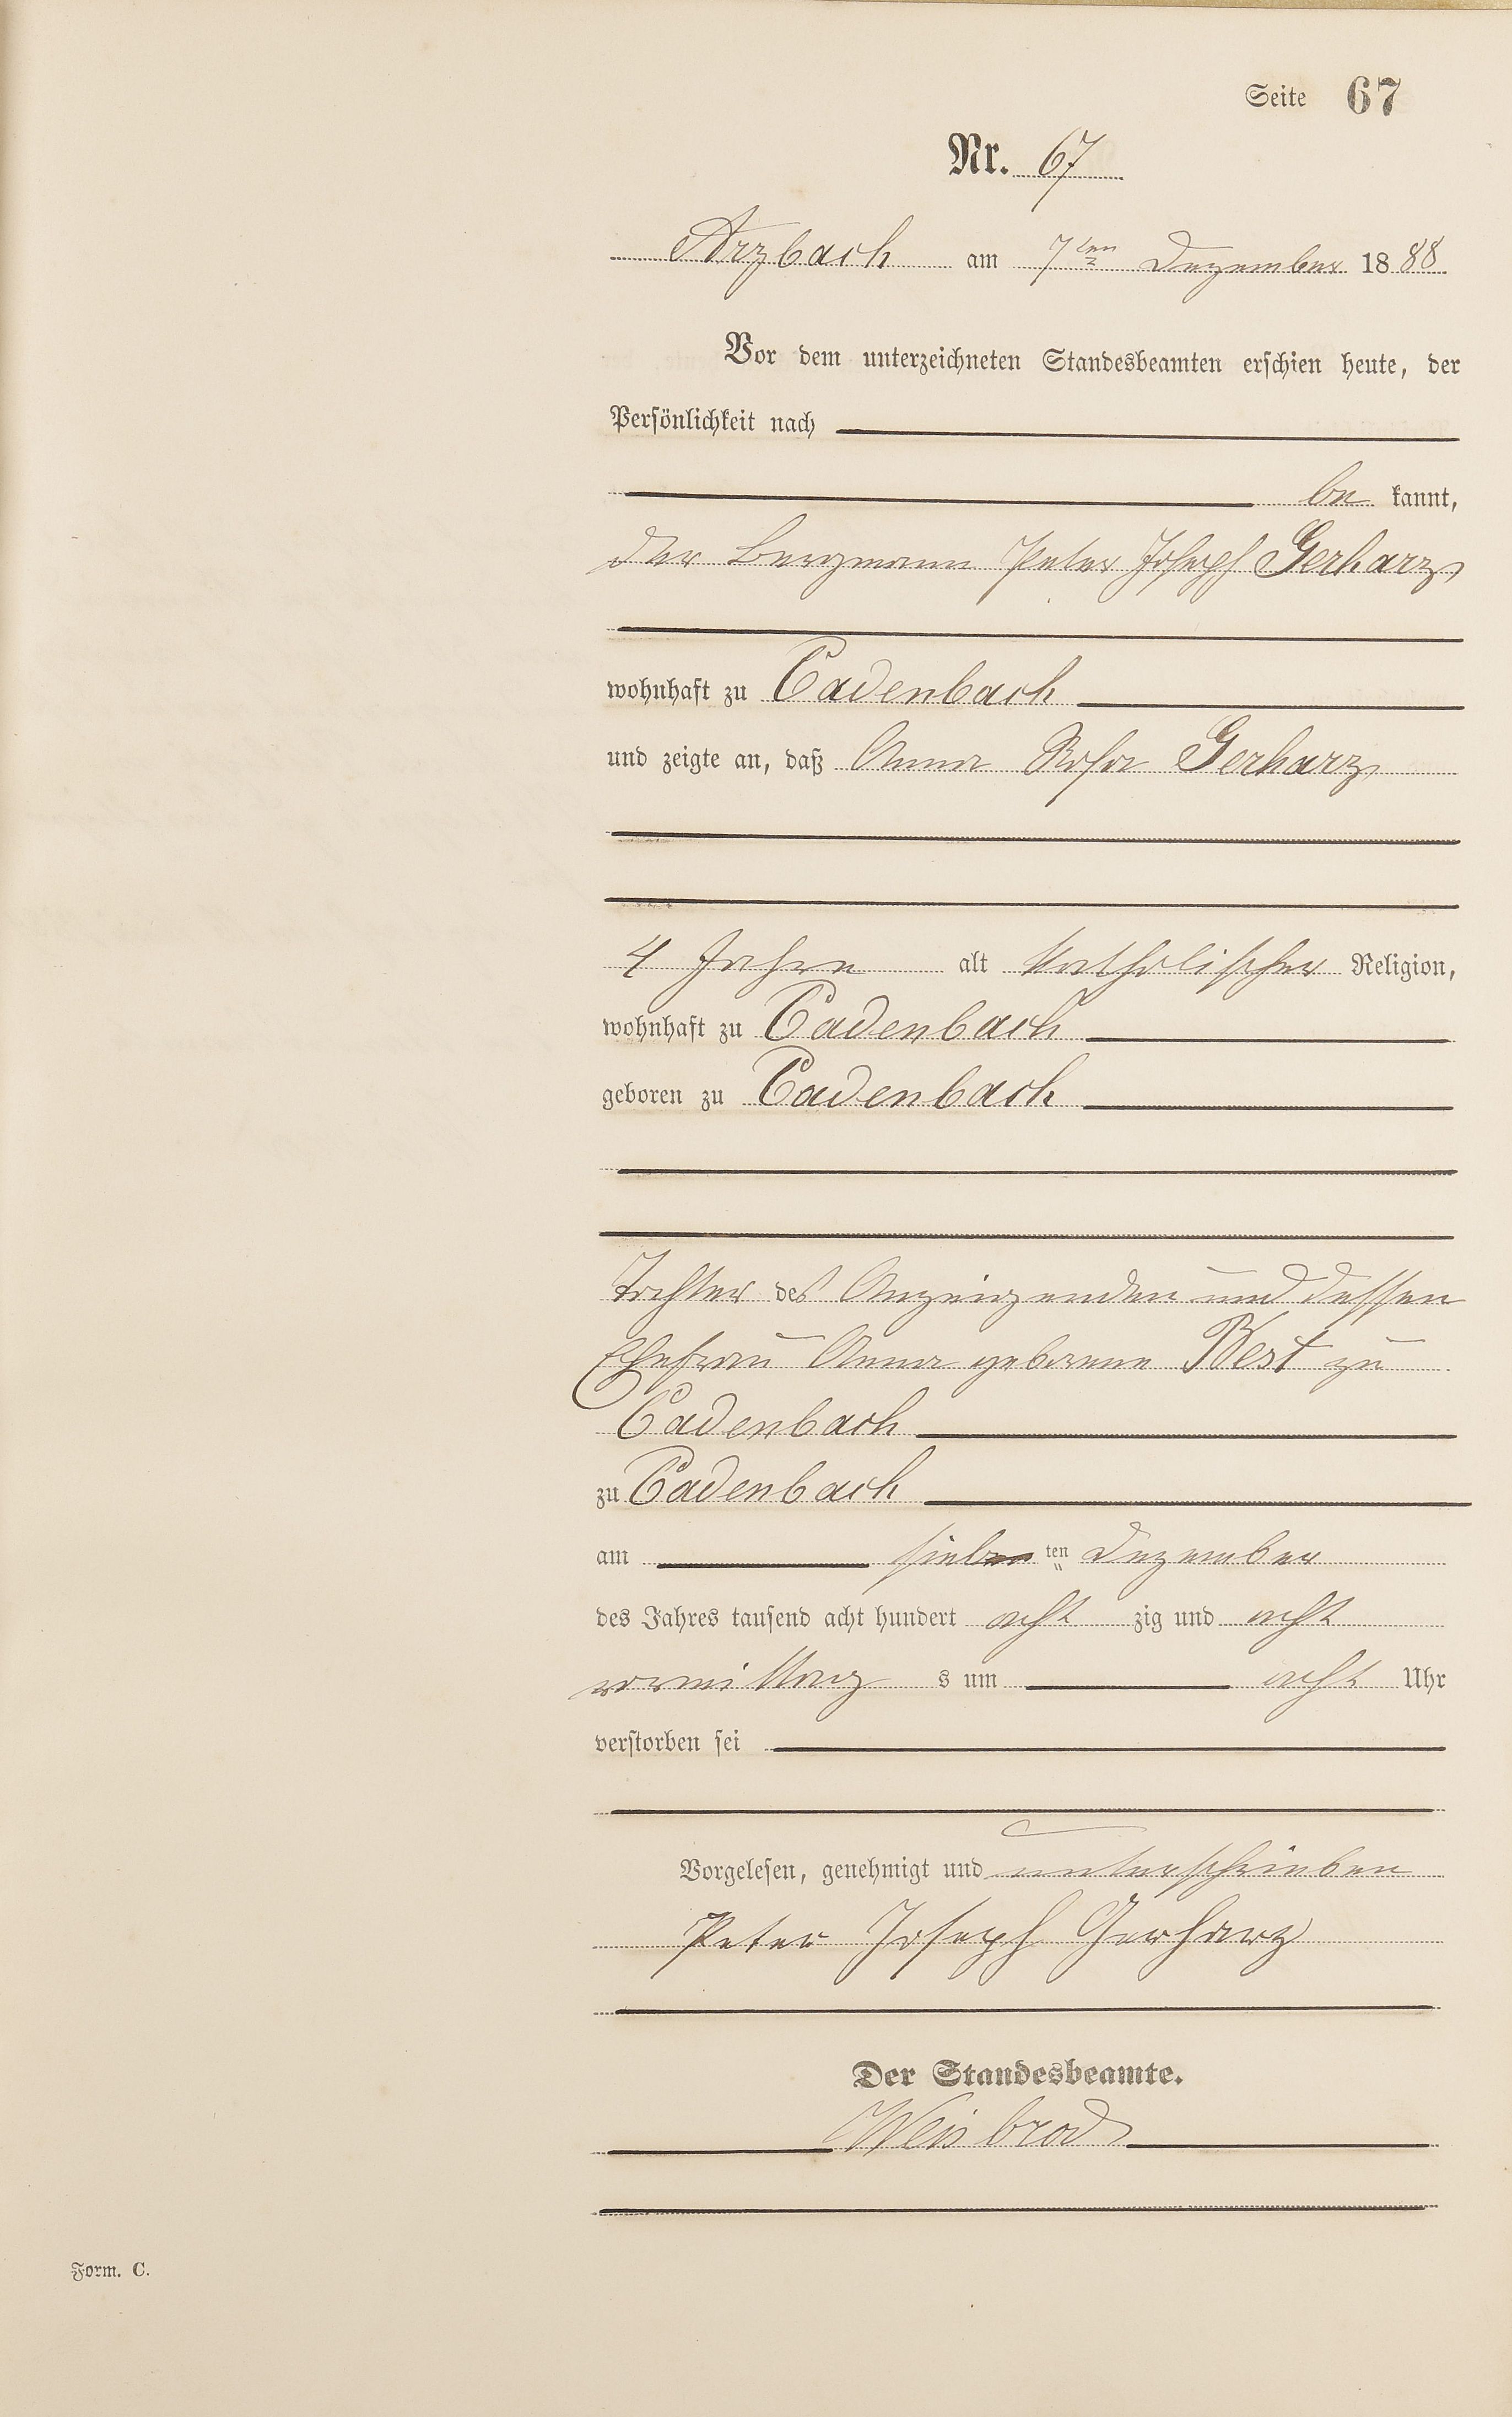 Seite 67
Nr. 67
Arzbach am 7ten Dezember 1888
Vor dem unterzeichneten Standesbeamten erschien heute, der
Persönlichkeit nach
be kannt,
der Bergmann Peter Joseph Gerharz
wohnhaft zu Cadenbach
und zeigte an, daß Anna Rosa Gerharz
4 Jahre alt katholischer Religion,
wohnhaft zu Cadenbach
geboren zu Cadenbach
Tochter des Anzeigenden und dessen
Ehefrau Anna geborene Best zu
Cadenbach
zu Cadenbach
am sieben ten Dezember
des Jahres tausend acht hundert acht zig und acht
vormittag s um acht Uhr
verstorben sei
Vorgelesen, genehmigt und unterschrieben
Peter Joseph Gerharz
Der Standesbeamte.
Weisbrod
Form. C.